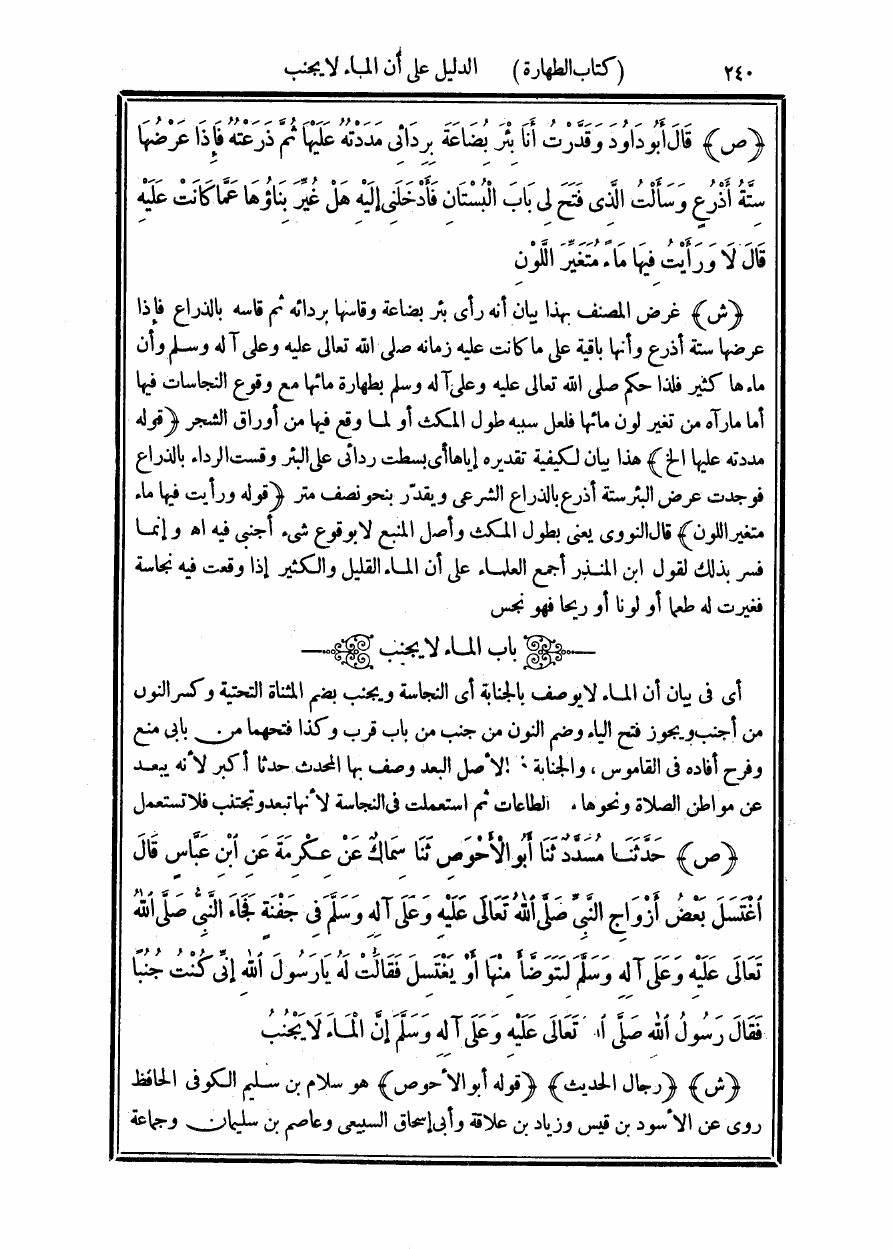 ٢٤٠ (كتاب الطهارة) الدليل على أن الماء لا يجنب
﴿ص﴾ قَالَ أَبُو دَاوُدَ وَقَدَّرْتُ أَنَا بِئْرَ بُضَاعَةَ بِرِدَائِى مَدَدْتُهُ عَلَيْهَا ثُمَّ ذَرَعْتُهُ فَإِذَا عَرْضُهَا
سِتَّةُ أَذْرُعٍ وَسَأَلْتُ الَّذِى فَتَحَ لِى بَابَ الْبُسْتَانِ فَأَدْخَلَنِى إِلَيْهِ هَلْ غُيِّرَ بِنَاؤُهَا عَمَّا كَانَتْ عَلَيْهِ
قَالَ لَا وَرَأَيْتُ فِيهَا مَاءً مُتَغَيِّرَ اللَّوْنِ
﴿ش﴾ غرض المصنف بهذا بيان أنه رأى بئر بضاعة وقاسها بردائه ثم قاسه بالذراع فإذا
عرضها ستة أذرع وأنها باقية على ما كانت عليه زمانه صلى الله تعالى عليه وعلى آله وسلم وأن
ماءها كثير فلذا حكم صلى الله تعالى عليه وعلى آله وسلم بطهارة مائها مع وقوع النجاسات فيها
أما مارآه من تغير لون مائها فلعل سببه طول المكث أو لما وقع فيها من أوراق الشجر ﴿قوله
مددته عليها الخ﴾ هذا بيان لكيفية تقديره إياها أى بسطت ردائى على البئر وقست الرداء بالذراع
فوجدت عرض البئر ستة أذرع بالذراع الشرعى ويقدّر بنحو نصف متر ﴿قوله ورأيت فيها ماء
متغير اللون﴾ قال النووى يعنى بطول المكث وأصل المنبع لا بوقوع شىء أجنبى فيه اه وإنما
فسر بذلك لقول ابن المنذر أجمع العلماء على أن الماء القليل والكثير إذا وقعت فيه نجاسة
فغيرت له طعما أو لونا أو ريحا فهو نجس
باب الماء لا يجنب
أى فى بيان أن الماء لا يوصف بالجنابة أى النجاسة ويجنب بضم المثناة التحتية وكسر النون
من أجنب ويجوز فتح الياء وضم النون من جنب من باب قرب وكذا فتحهما من بابى منع
وفرح أفاده فى القاموس ، والجنابة فى الأصل البعد وصف بها المحدث حدثا أكبر لأنه يبعد
عن مواطن الصلاة ونحوها من الطاعات ثم استعملت فى النجاسة لأنها تبعد وتجتنب فلا تستعمل
﴿ص﴾ حَدَّثَنَا مُسَدَّدٌ ثَنَا أَبُو الأَحْوَصِ ثَنَا سِمَاكٌ عَنْ عِكْرِمَةَ عَنِ ابْنِ عَبَّاسٍ قَالَ
اغْتَسَلَ بَعْضُ أَزْوَاجِ النَّبِىِّ صَلَّى اللهُ تَعَالَى عَلَيْهِ وَعَلَى آلِهِ وَسَلَّمَ فِى جَفْنَةٍ فَجَاءَ النَّبِىُّ صَلَّى اللهُ
تَعَالَى عَلَيْهِ وَعَلَى آلِهِ وَسَلَّمَ لِيَتَوَضَّأَ مِنْهَا أَوْ يَغْتَسِلَ فَقَالَتْ لَهُ يَارَسُولَ اللهِ إِنِّى كُنْتُ جُنُبًا
فَقَالَ رَسُولُ اللهِ صَلَّى اللهُ تَعَالَى عَلَيْهِ وَعَلَى آلِهِ وَسَلَّمَ إِنَّ الْمَاءَ لَا يَجْنُبُ
﴿ش﴾ ﴿رجال الحديث﴾ ﴿قوله أبو الأحوص﴾ هو سلام بن سليم الكوفى الحافظ
روى عن الأسود بن قيس وزياد بن علاقة وأبى إسحاق السبيعى وعاصم بن سليمان وجماعة